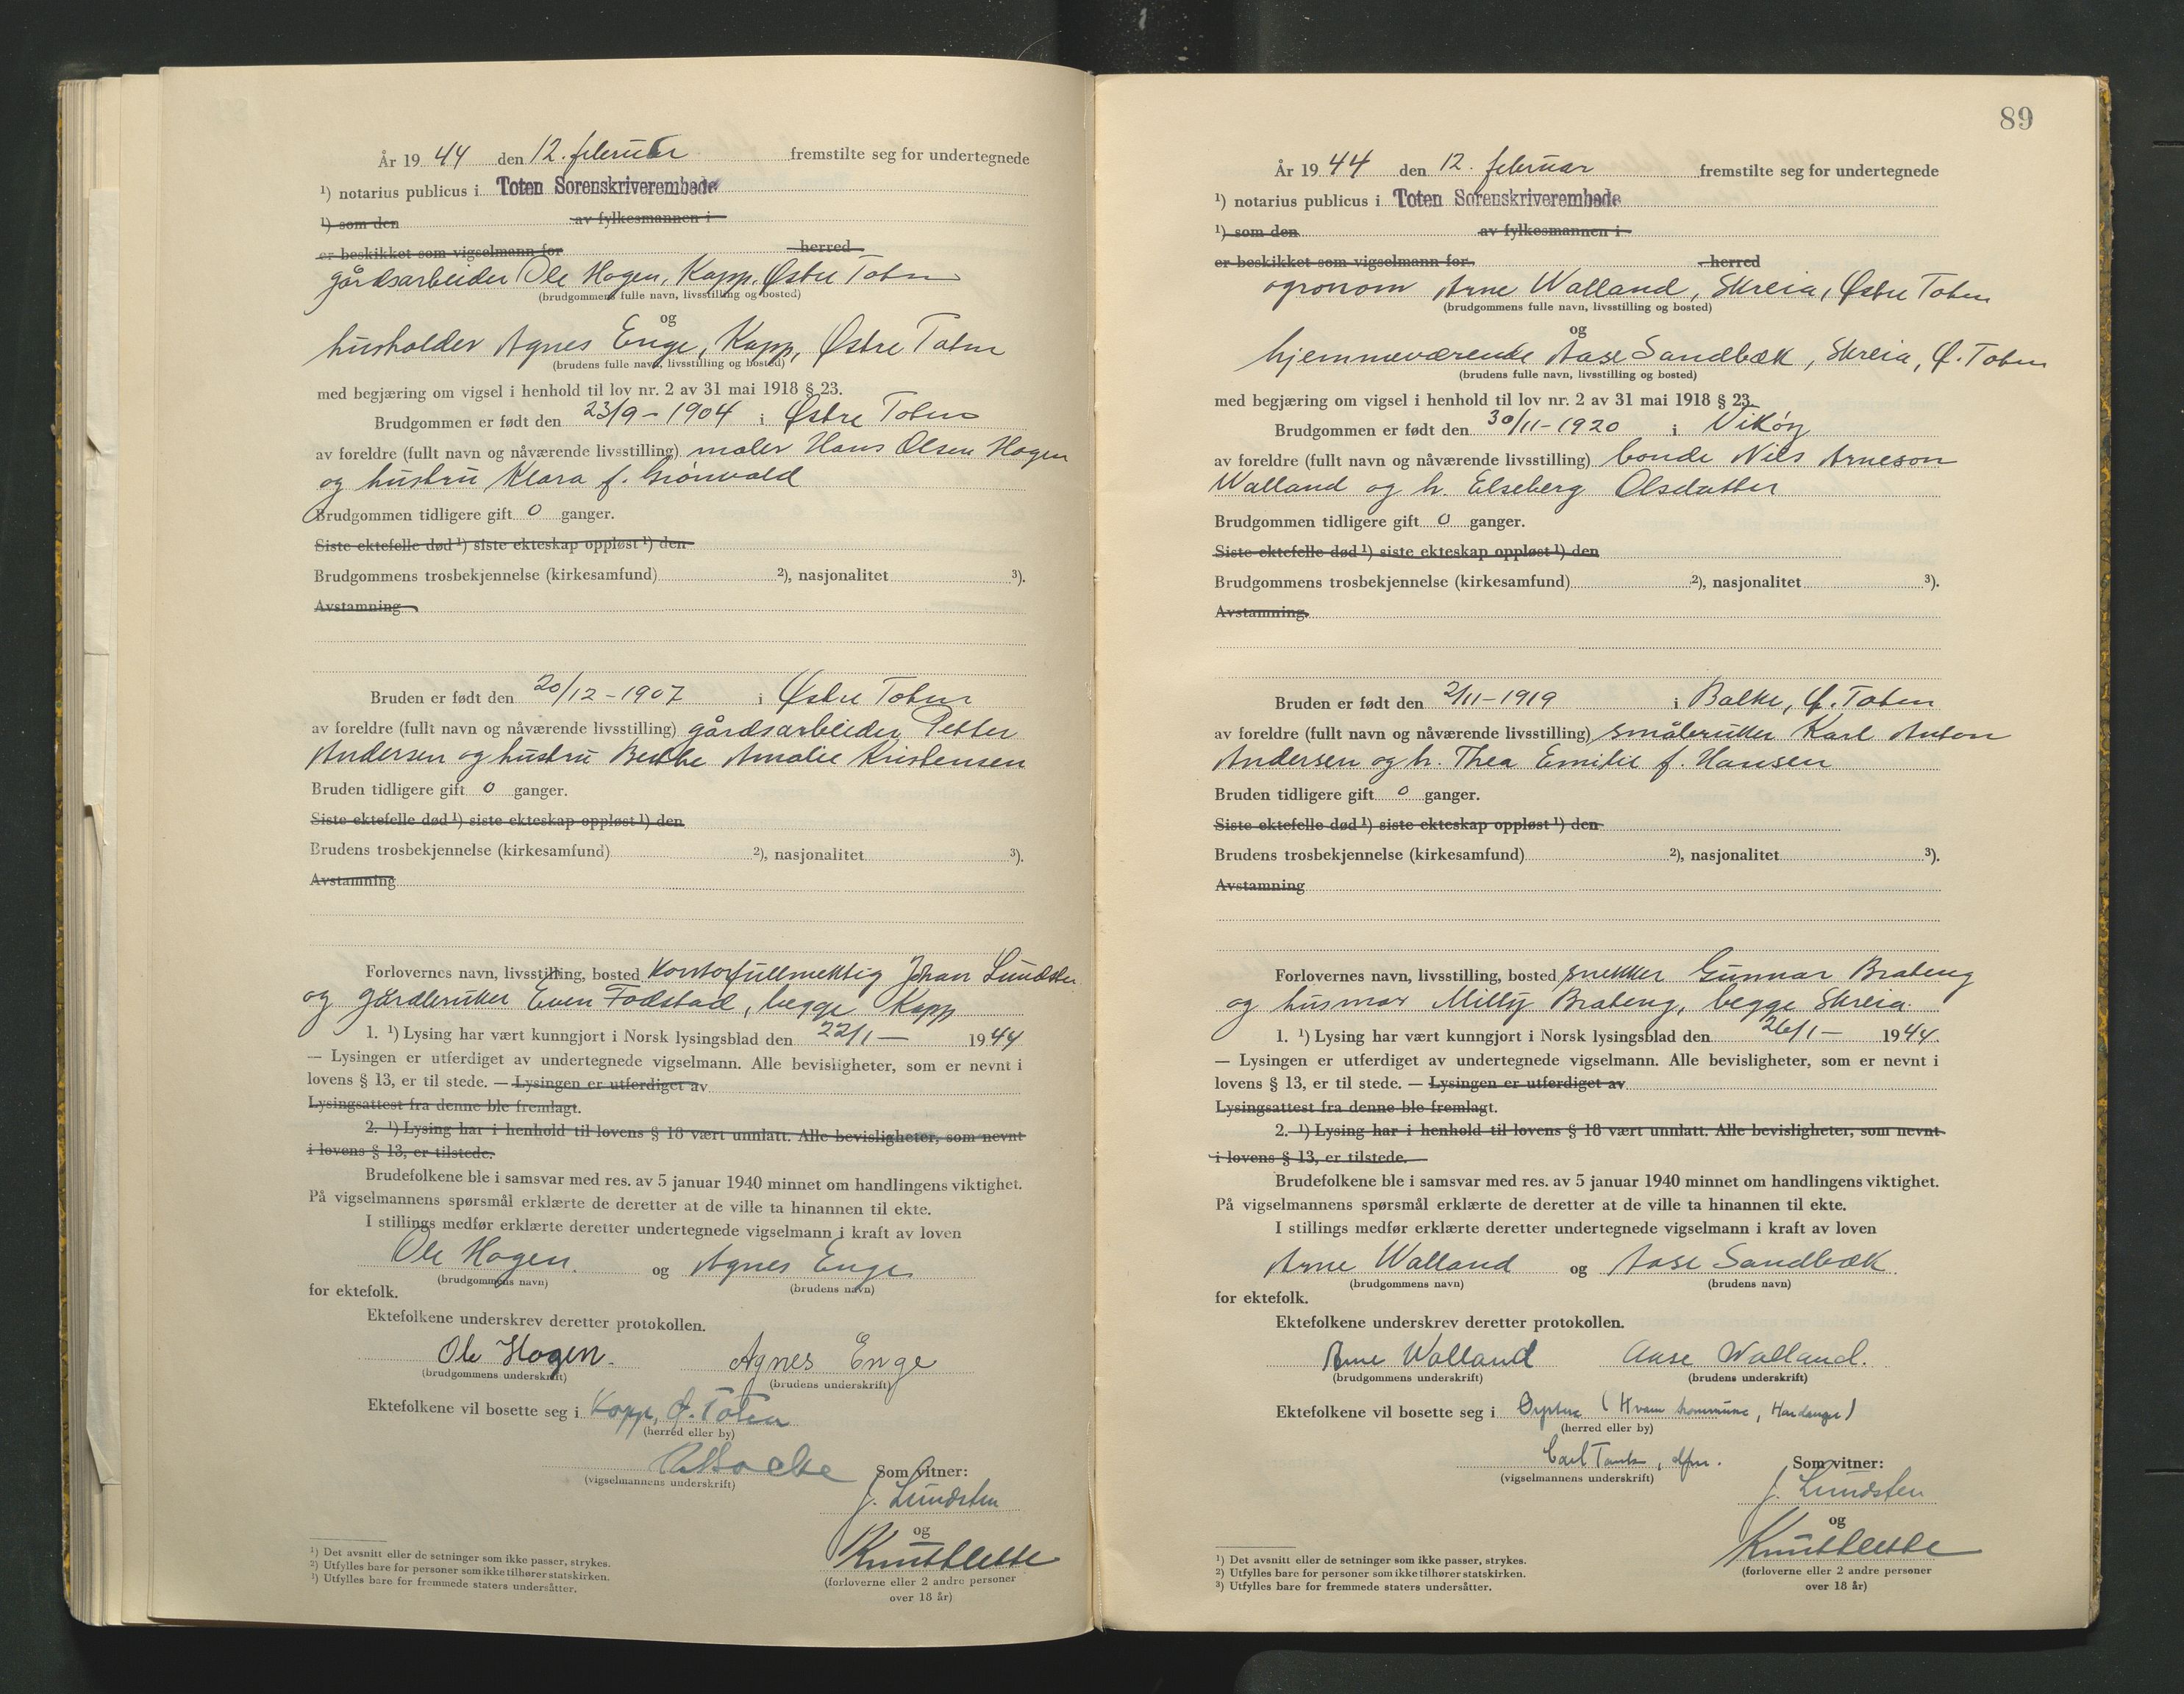 År 19 44 den 12. februar fremstilte seg for undertegnede
¹) notarius publicus i Toten Sorenskriverembede
¹) som den av fylkesmannen i
er beskikket som vigselmann for herred
gårdsarbeider Ole Hagen, Kapp, Østre Toten
(brudgommens fulle navn, livsstilling og bosted)
og
husholder Agnes Enge, Kapp, Østre Toten
(brudens fulle navn, livsstilling og bosted)
med begjæring om vigsel i henhold til lov nr. 2 av 31 mai 1918 § 23.
Brudgommen er født den 23/9-1904 i Østre Toten
av foreldre (fullt navn og nåværende livsstilling) maler Hans Olsen Hagen
og hustru Klara f. Grönvold
Brudgommen tidligere gift 0 ganger.
Siste ektefelle død ¹) siste ekteskap oppløst ¹) den
Brudgommens trosbekjennelse (kirkesamfund) ²), nasjonalitet ³).
Avstamning
Bruden er født den 20/12-1907 i Østre Toten
av foreldre (fullt navn og nåværende livsstilling) gårdsarbeider Petter
Andersen og hustru Berthe Amalie Kristensen
Bruden tidligere gift 0 ganger.
Siste ektefelle død ¹) siste ekteskap oppløst ¹) den
Brudens trosbekjennelse (kirkesamfund) ²), nasjonalitet ³).
Avstamning
Forlovernes navn, livsstilling, bosted kontorfullmektig Johan Lundsten
og gårdbruker Even Fodstad, begge Kapp
1. ¹) Lysing har vært kunngjort i Norsk lysingsblad den 22/1 — 1944
— Lysingen er utferdiget av undertegnede vigselmann. Alle bevisligheter, som er nevnt i
lovens § 13, er til stede. — Lysingen er utferdiget av
Lysingsattest fra denne ble fremlagt.
2. ¹) Lysing har i henhold til lovens § 18 vært unnlatt. Alle bevisligheter, som nevnt
i lovens § 13, er tilstede.
Brudefolkene ble i samsvar med res. av 5 januar 1940 minnet om handlingens viktighet.
På vigselmannens spørsmål erklærte de deretter at de ville ta hinannen til ekte.
I stillings medfør erklærte deretter undertegnede vigselmann i kraft av loven
Ole Hagen. og Agnes Enge
(brudgommens navn) (brudens navn)
for ektefolk.
Ektefolkene underskrev deretter protokollen.
Ole Hagen. Agnes Enge
(brudgommens underskrift) (brudens underskrift)
Ektefolkene vil bosette seg i Kapp, Ø. Toten
(herred eller by)
Som vitner:
(vigselmannens underskrift)
J. Lundsten
og
(forloverne eller 2 andre personer
over 18 år)
¹) Det avsnitt eller de setninger som ikke passer, strykes.
²) Utfylles bare for personer som ikke tilhører statskirken.
³) Utfylles bare for fremmede staters undersåtter.
89
År 19 44 den 12. februar fremstilte seg for undertegnede
¹) notarius publicus i Toten Sorenskriverembede
¹) som den av fylkesmannen i
er beskikket som vigselmann for herred
agronom Arne Walland, Skreia, Østre Toten
(brudgommens fulle navn, livsstilling og bosted)
og
hjemmeværende Aase Sandbæk, Skreia, Ø. Toten
(brudens fulle navn, livsstilling og bosted)
med begjæring om vigsel i henhold til lov nr. 2 av 31 mai 1918 § 23.
Brudgommen er født den 30/11-1920 i Vikøy
av foreldre (fullt navn og nåværende livsstilling) bonde Nils Arneson
Walland og h. Elseberg Olsdatter
Brudgommen tidligere gift 0 ganger.
Siste ektefelle død ¹) siste ekteskap oppløst ¹) den
Brudgommens trosbekjennelse (kirkesamfund) ²), nasjonalitet ³).
Avstamning
Bruden er født den 2/11-1919 i Balke, Ø. Toten
av foreldre (fullt navn og nåværende livsstilling) småbruker Karl Anton
Andersen og h. Thea Emilie f. Hansen
Bruden tidligere gift 0 ganger.
Siste ektefelle død ¹) siste ekteskap oppløst ¹) den
Brudens trosbekjennelse (kirkesamfund) ²), nasjonalitet ³).
Avstamning
Forlovernes navn, livsstilling, bosted snekker Gunnar Brateng
og husmor Milly Brateng, begge Skreia.
1. ¹) Lysing har vært kunngjort i Norsk lysingsblad den 26/1 — 1944.
— Lysingen er utferdiget av undertegnede vigselmann. Alle bevisligheter, som er nevnt i
lovens § 13, er til stede. — Lysingen er utferdiget av
Lysingsattest fra denne ble fremlagt.
2. ¹) Lysing har i henhold til lovens § 18 vært unnlatt. Alle bevisligheter, som nevnt
i lovens § 13, er tilstede.
Brudefolkene ble i samsvar med res. av 5 januar 1940 minnet om handlingens viktighet.
På vigselmannens spørsmål erklærte de deretter at de ville ta hinannen til ekte.
I stillings medfør erklærte deretter undertegnede vigselmann i kraft av loven
Arne Walland og Aase Sandbæk
(brudgommens navn) (brudens navn)
for ektefolk.
Ektefolkene underskrev deretter protokollen.
Arne Walland Aase Walland.
(brudgommens underskrift) (brudens underskrift)
Ektefolkene vil bosette seg i (Kvam kommune, Hardanger)
(herred eller by)
Carl Som vitner:
(vigselmannens underskrift)
J. Lundsten
og
(forloverne eller 2 andre personer
over 18 år)
¹) Det avsnitt eller de setninger som ikke passer, strykes.
²) Utfylles bare for personer som ikke tilhører statskirken.
³) Utfylles bare for fremmede staters undersåtter.